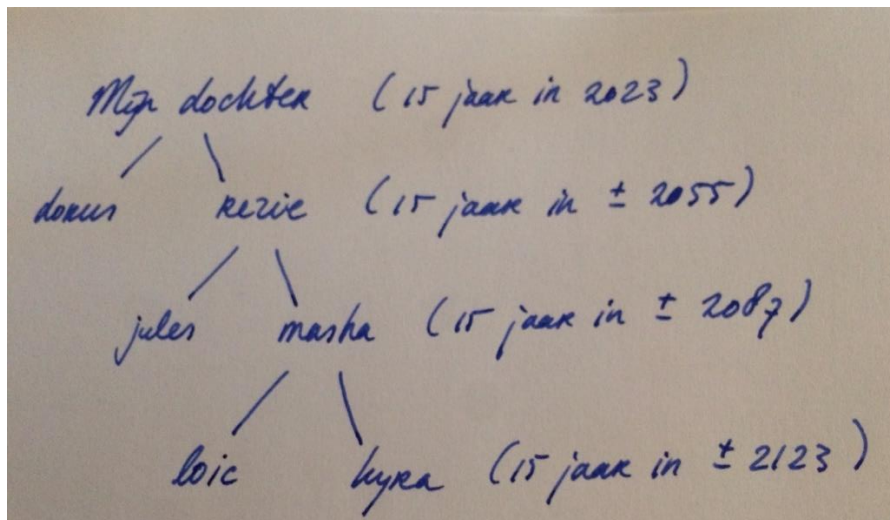 Mijn dochter (15 jaar in 2023)
dorus rezie (15 jaar in ± 2055)
jules masha (15 jaar in ± 2087)
loic kyra (15 jaar in ± 2123)